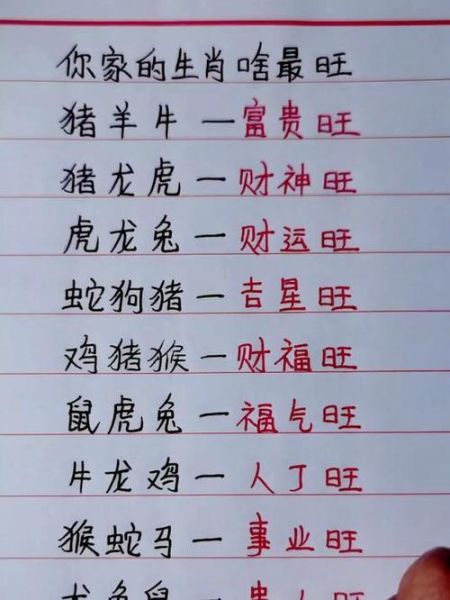 你家的生肖啥最旺
猪羊牛—富贵旺
猪龙虎—财神旺
虎龙兔—财运旺
蛇狗猪—吉星旺
鸡猪猴—财福旺
鼠虎兔—福气旺
牛龙鸡—人丁旺
猴蛇马—事业旺
龙兔鼠—贵人旺